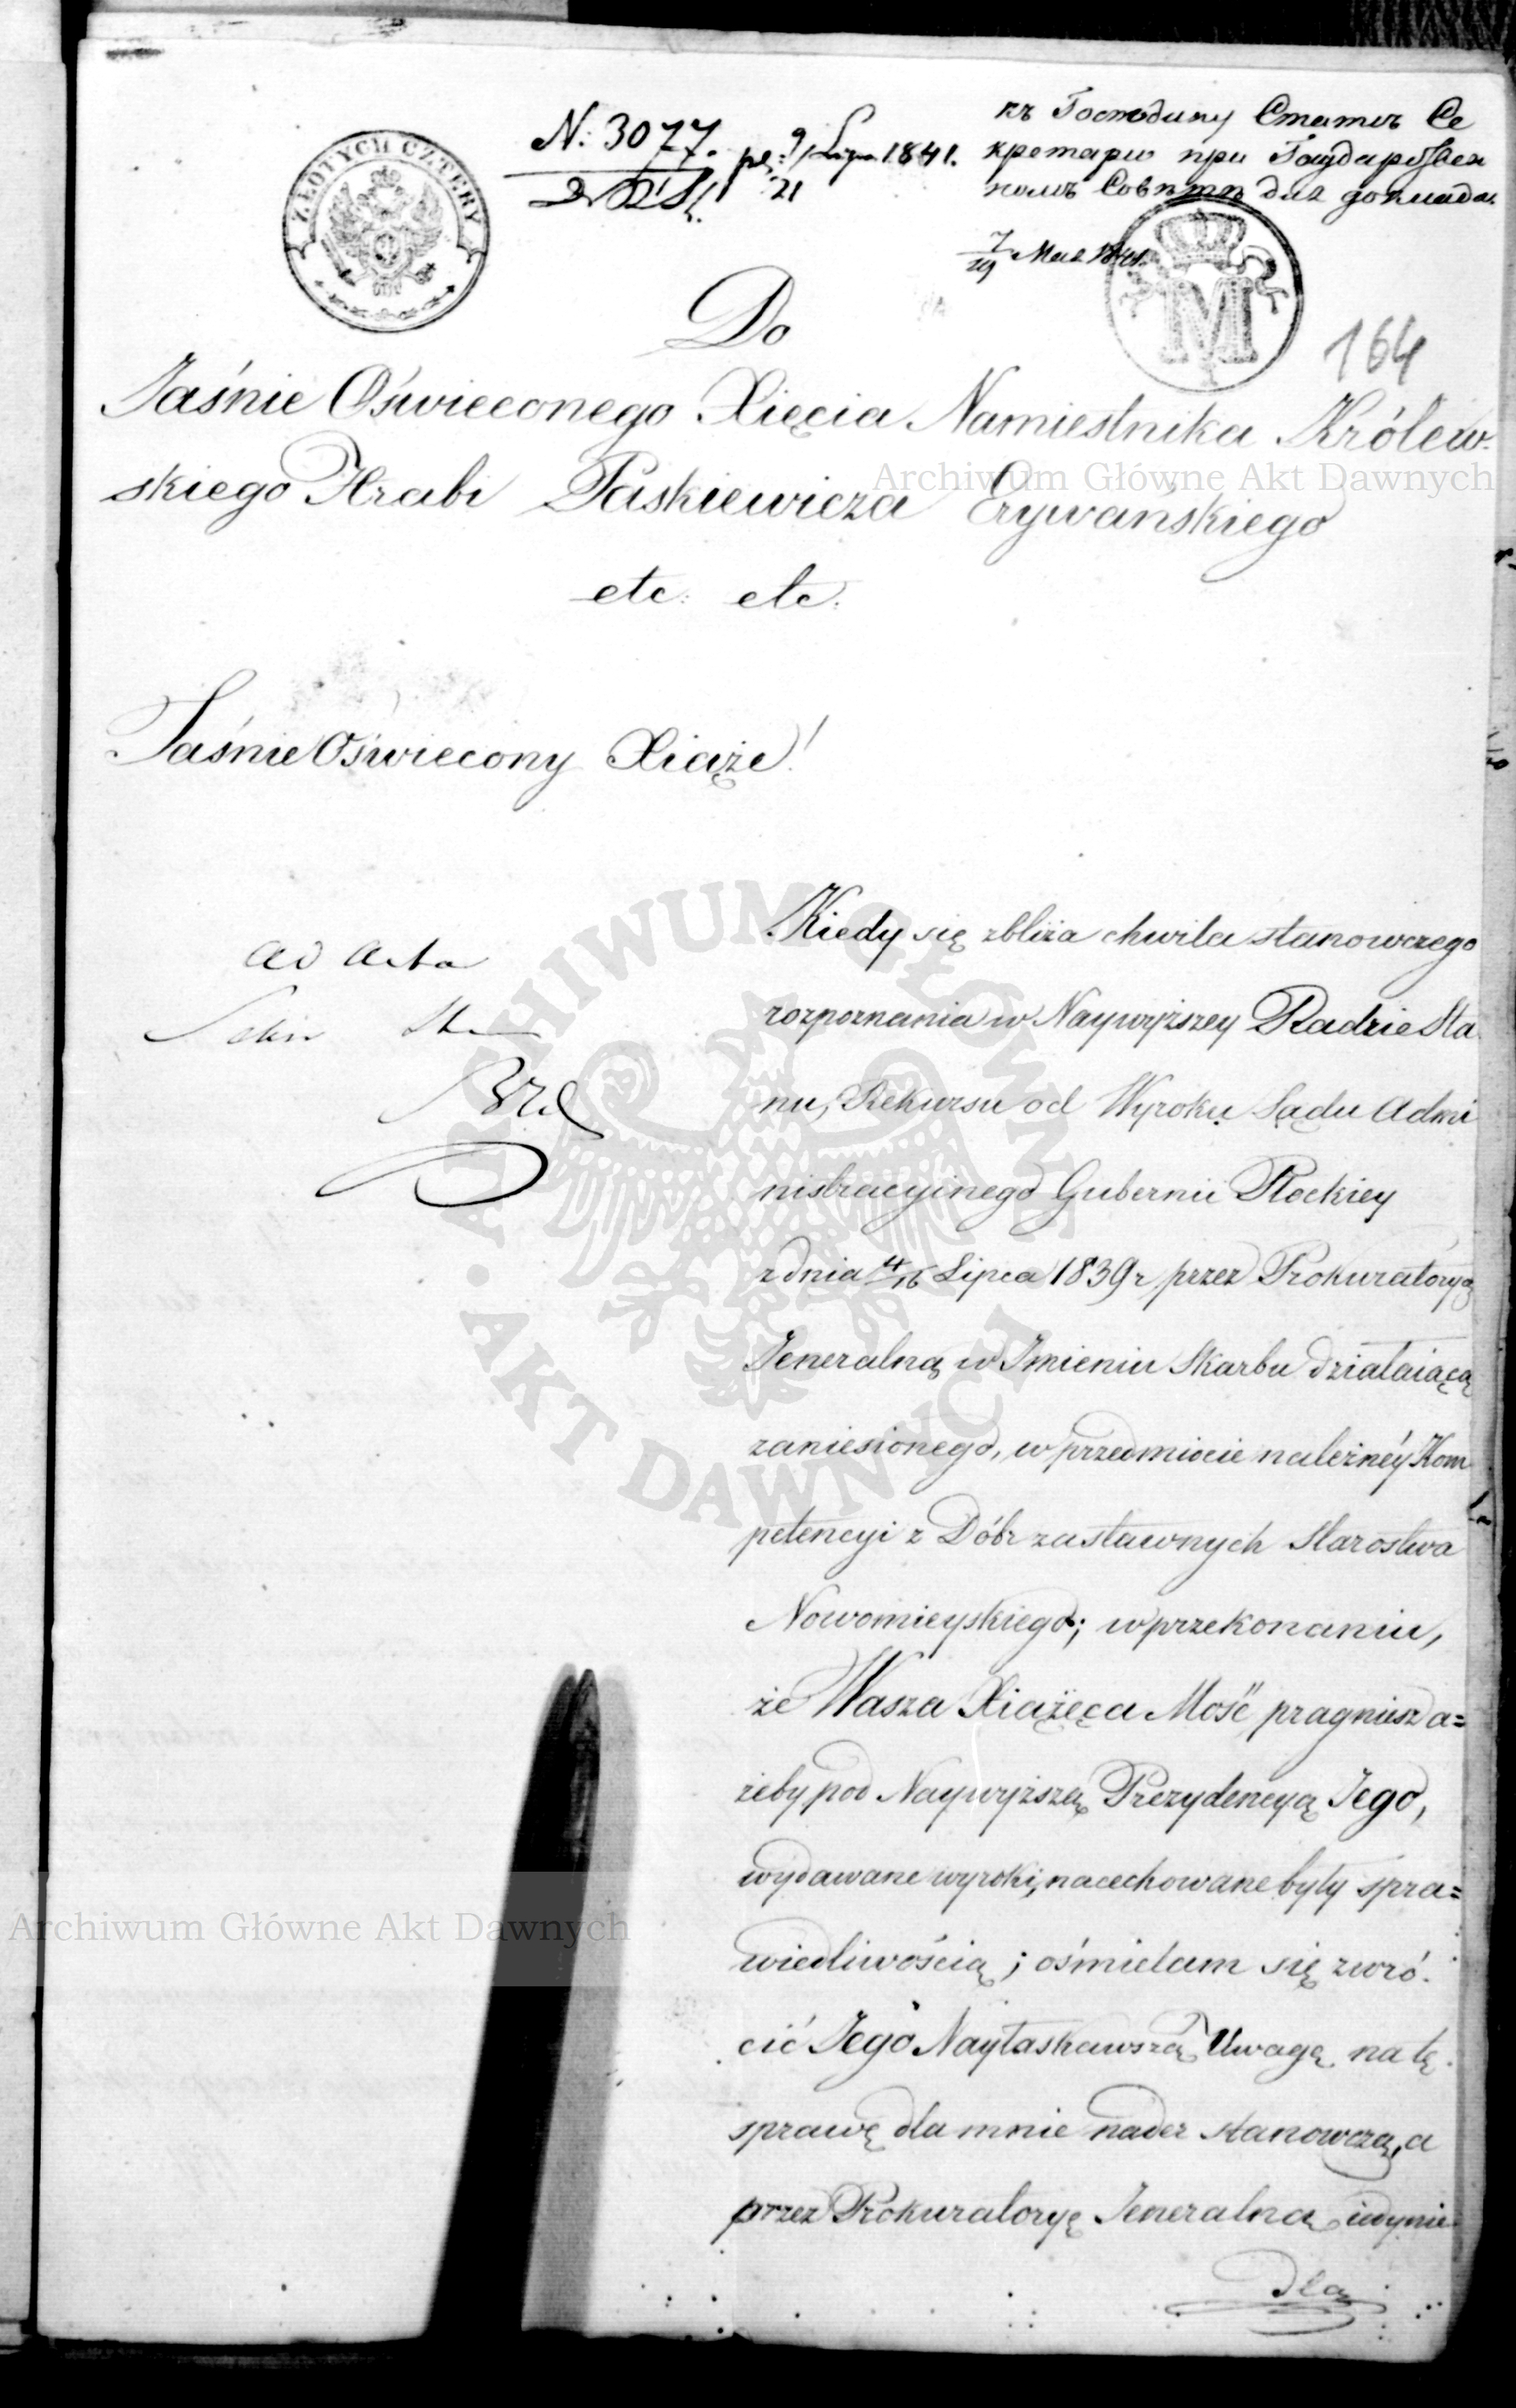 N: 3077.
9/21 Lipca 1841.
къ Господину Статсъ Се
кретарю при Государствен
номъ Совѣтѣ для доклада.
7/19 Мая 1841.
ZŁOTYCH CZTERY
M
164
Do
Jaśnie Oświeconego Xięcia Namiestnika Królew-
skiego Hrabi Paskiewicza Erywańskiego
etc: etc:
Jaśnie Oświecony Xiąże!
ad acta
Kiedy się zbliża chwila stanowczego
rozpoznania w Naywyższey Radzie Sta
nu, Rekursu od Wyroku Sądu Admi
nistracyinego Gubernii Płockiey
z dnia 4/16 Lipca 1839 r przez Prokuratoryą
Jeneralną w Imieniu Skarbu działaiącą
zaniesionego, w przedmiocie należnéy Kom
petencyi z Dóbr zastawnych Starostwa
Nowomieyskiego; w przekonaniu,
że Wasza Xiążęca Mość pragniesz a=
żeby pod Naywyższą Prezydencyą Jego,
wydawane wyroki, nacechowane były spra=
wiedliwością; ośmielam się zwró-
cić Jego Nayłaskawszą Uwagę na tę
sprawę dla mnie nader stanowczą, a
przez Prokuratoryę Jeneralną iedynie
dla
Archiwum Główne Akt Dawnych
ARCHIWUM GŁÓWNE
AKT DAWNYCH
Archiwum Główne Akt Dawnych